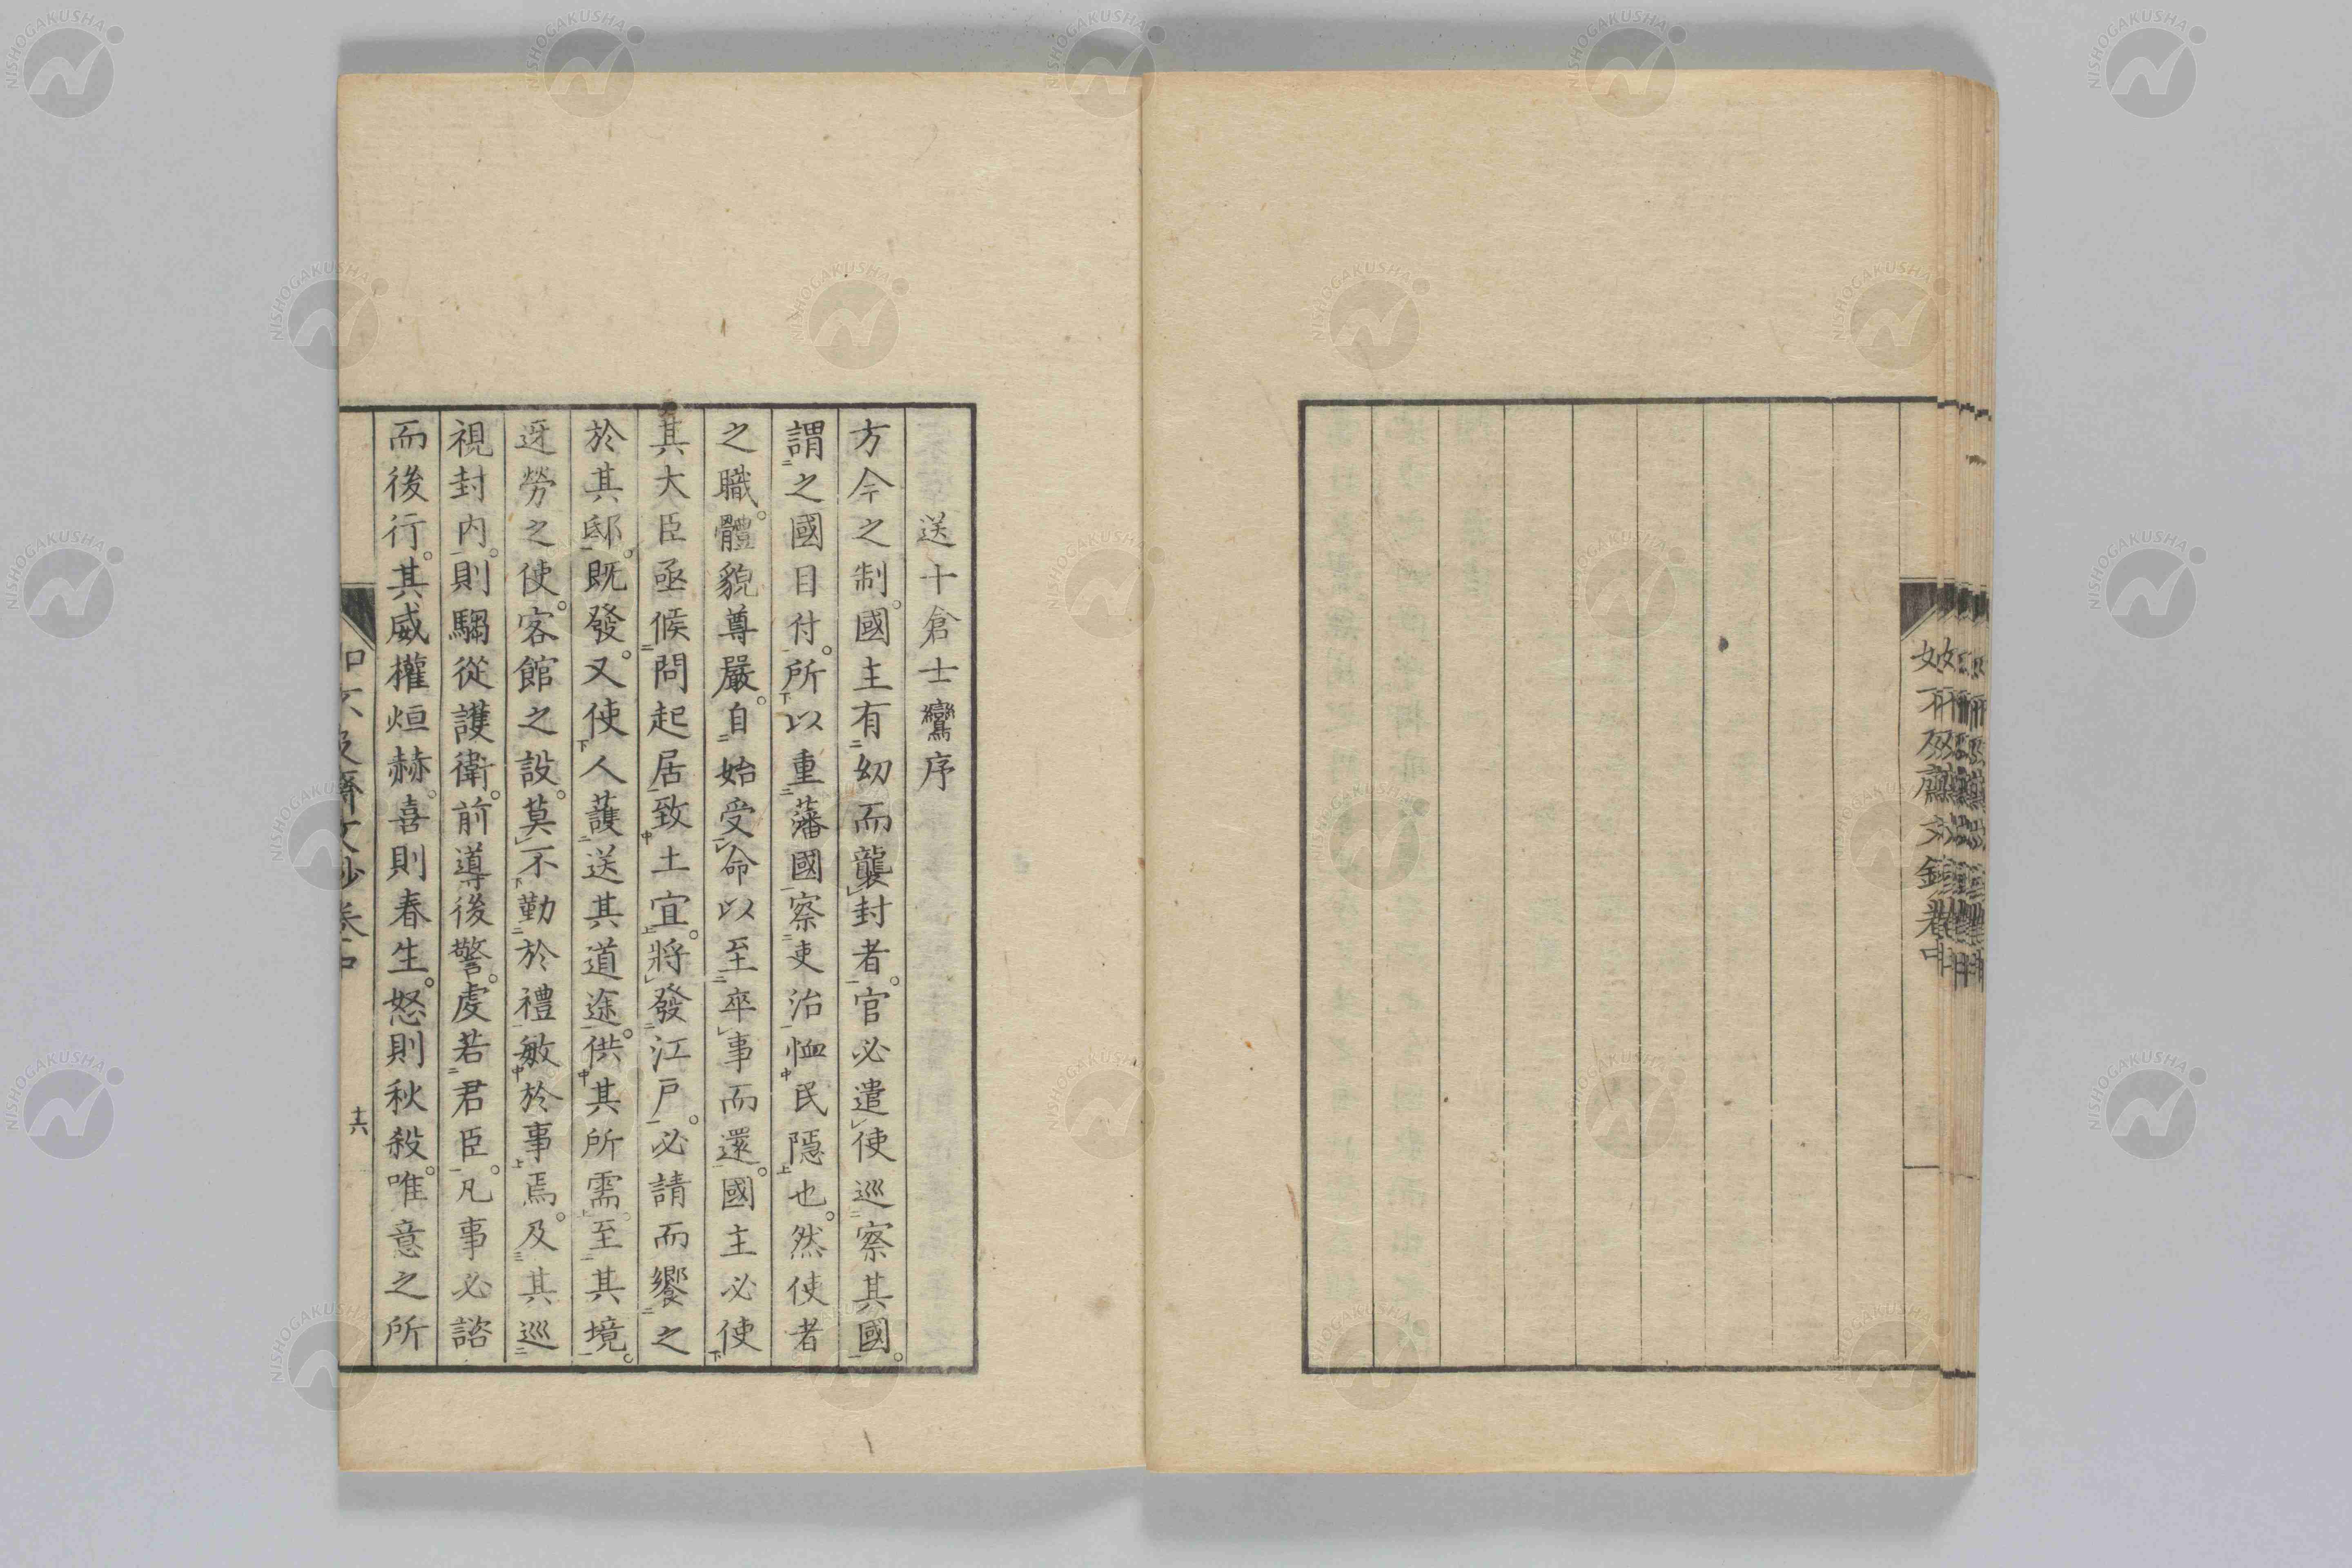 如不及齋文鈔卷中
送十倉士鸞序
方今之制。國主有幼而襲封者。官必遣使巡察其國。
謂之國目付。所以重藩國察吏治恤民隱也。然使者
之職。體貌尊嚴。自始受命以至卒事而還。國主必使
其大臣亟候問起居致土宜。將發江戶。必請而饗之
於其邸。既發。又使人護送其道途。供其所需。至其境。
迓勞之使。客館之設。莫不勤於禮敏於事焉。及其巡
視封内。則騶從護衛。前導後警。虔若君臣。凡事必諮
而後行。其威權烜赫。喜則春生。怒則秋殺。唯意之所
如不及齋文鈔卷中
十六
NISHOGAKUSHA